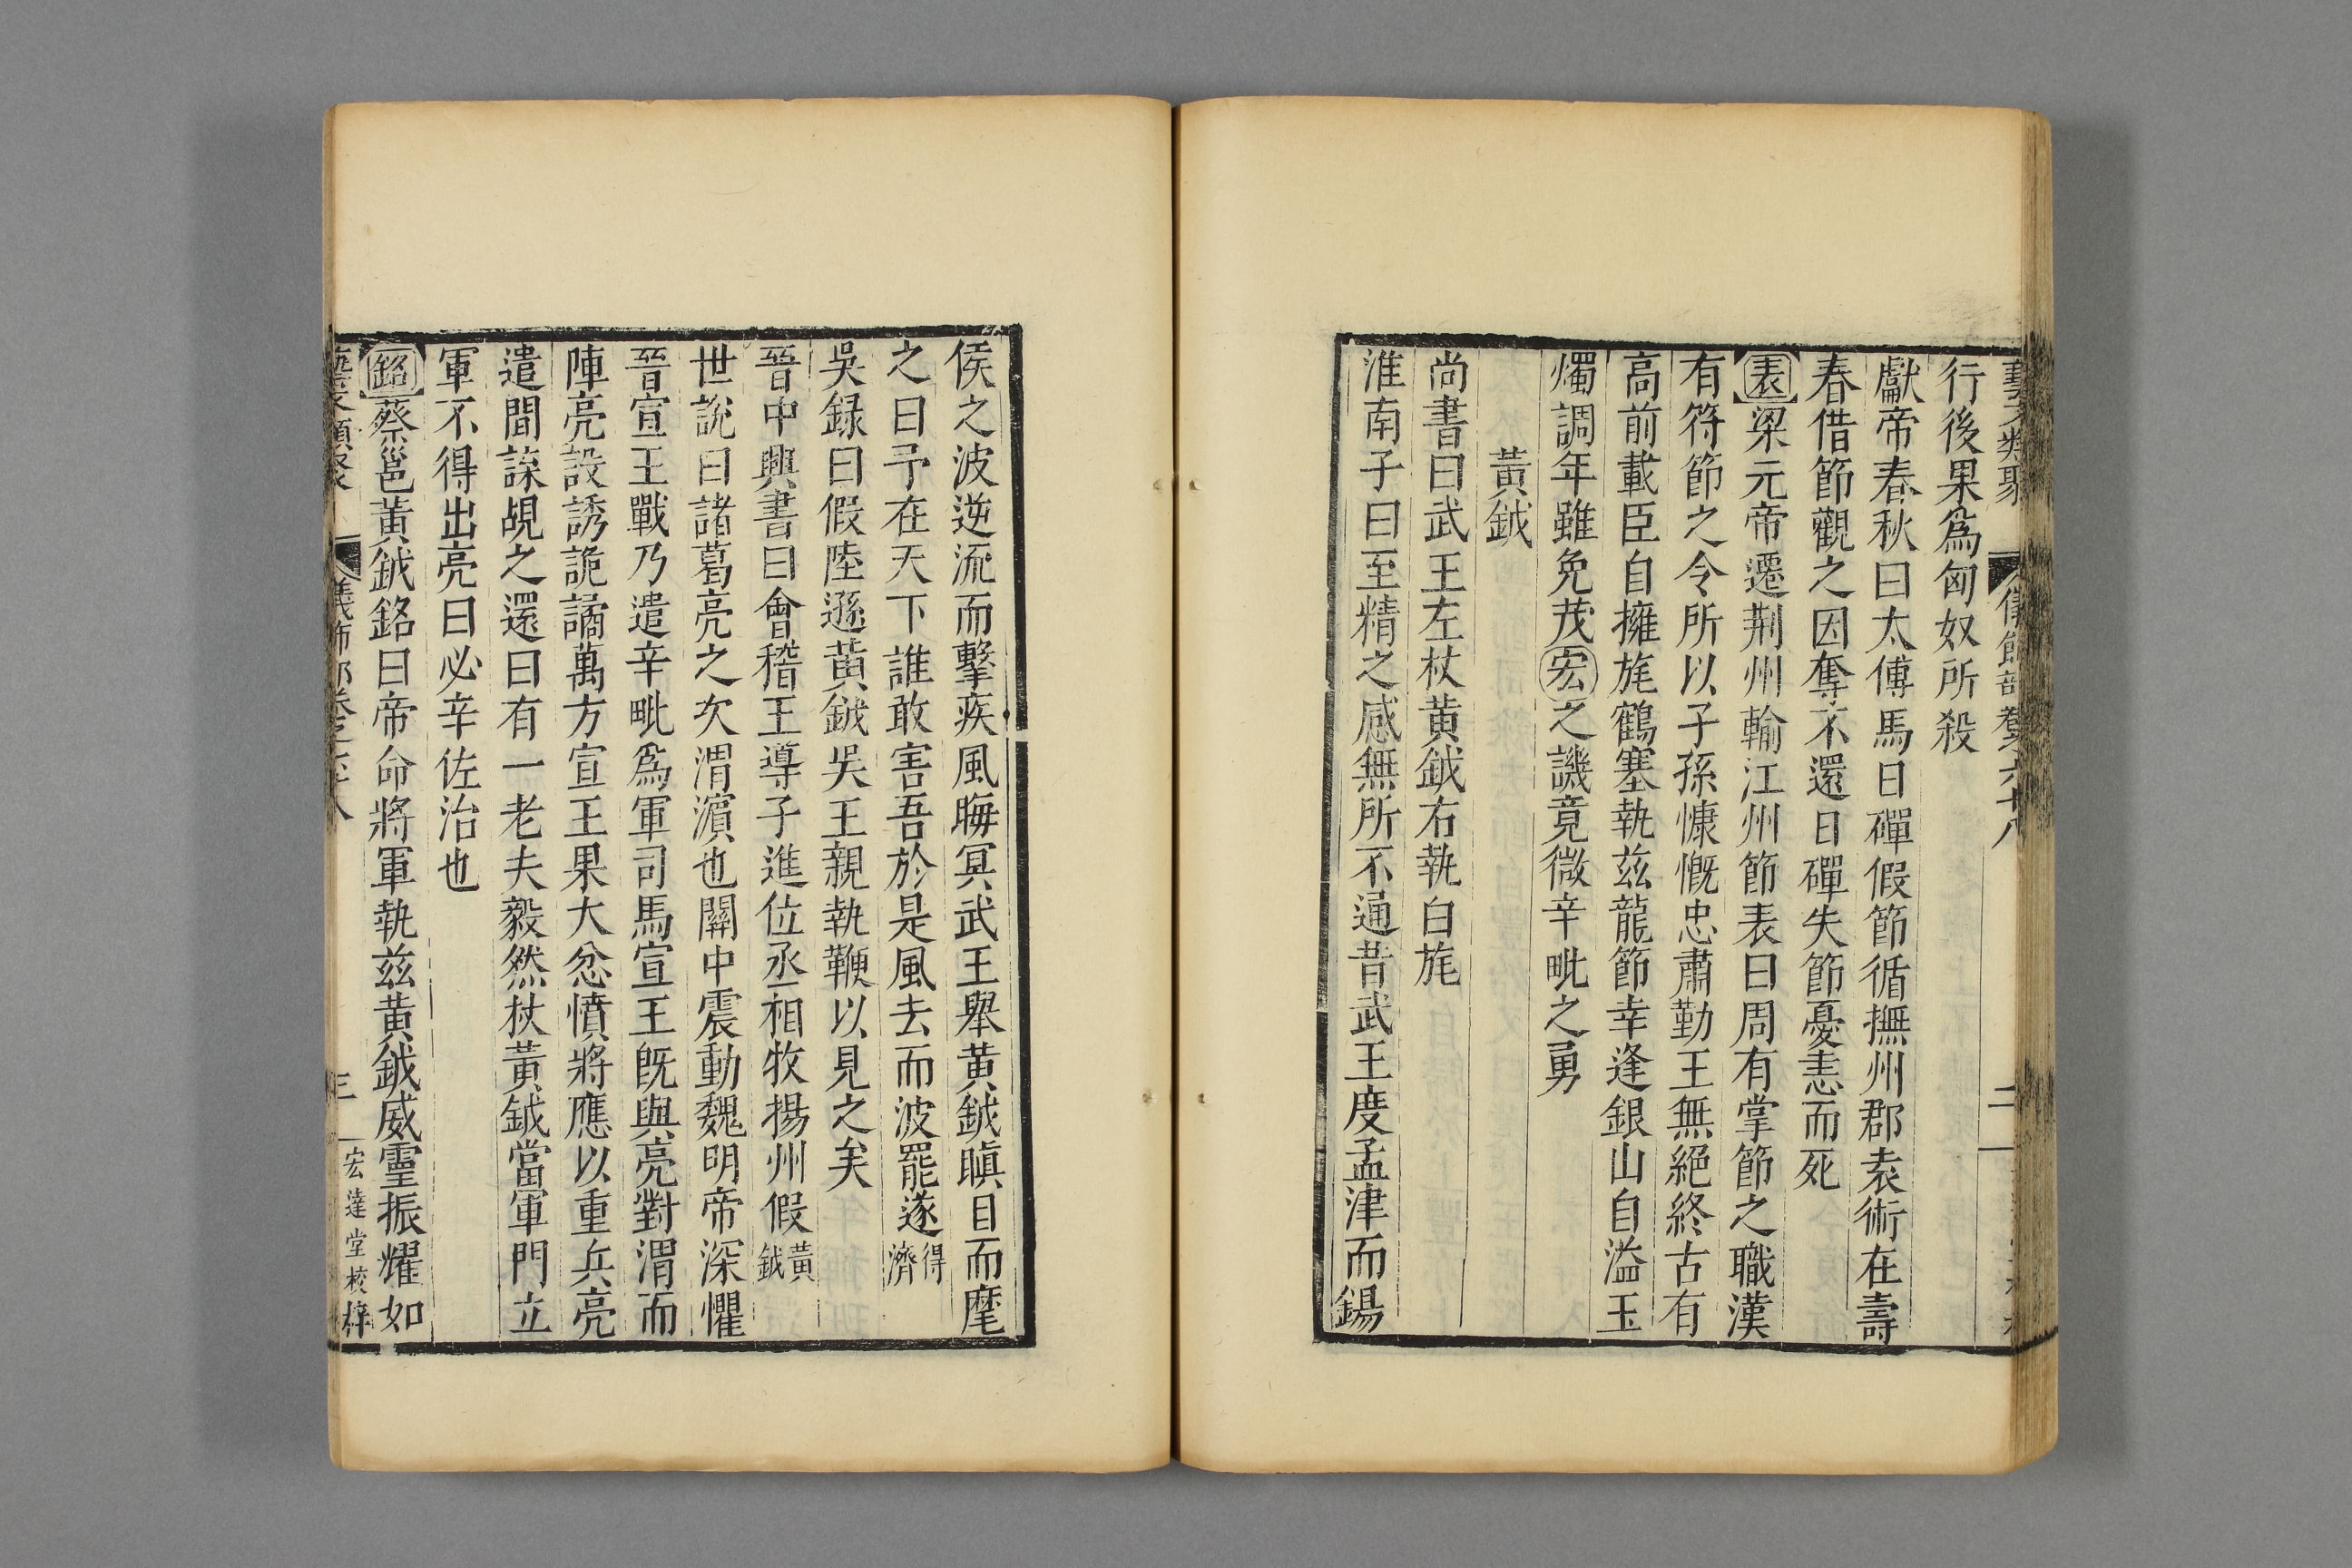 藝文類聚 儀飾部卷六十八 二
行後果爲匈奴所殺
獻帝春秋曰太傅馬日磾假節循撫州郡袁術在壽
春借節觀之因奪不還日磾失節憂恚而死
表梁元帝遷荆州輸江州節表曰周有掌節之職漢
有符節之令所以子孫慷慨忠肅勤王無絕終古有
高前載臣自擁旄鶴塞執茲龍節幸逢銀山自溢玉
燭調年雖免茂宏之譏竟微辛毗之勇
黃鉞
尚書曰武王左杖黄鉞右執白旄
淮南子曰至精之感無所不通昔武王度孟津而鍚
侯之波逆流而擊疾風晦冥武王舉黄鉞瞋目而麾
之曰予在天下誰敢害吾於是風去而波罷遂得濟
吳録曰假陸遜黄鉞吳王親執鞭以見之矣
晉中興書曰會稽王導子進位丞相牧揚州假黃鉞
世說曰諸葛亮之次渭濵也關中震動魏明帝深懼
晉宣王戰乃遣辛毗爲軍司馬宣王旣與亮對渭而
陣亮設誘詭譎萬方宣王果大忿憤將應以重兵亮
遣間諜覘之還曰有一老夫毅然杖黃鉞當軍門立
軍不得出亮曰必辛佐治也
銘蔡邕黃鉞銘曰帝命將軍執茲黄鉞威靈振耀如
藝文類聚 儀飾部卷之六十八 三 宏達堂校梓